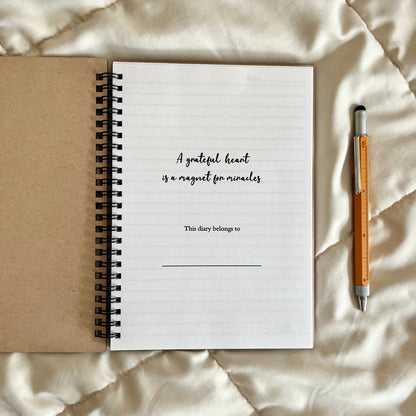 A grateful heart
is a magnet for miracles
This diary belongs to